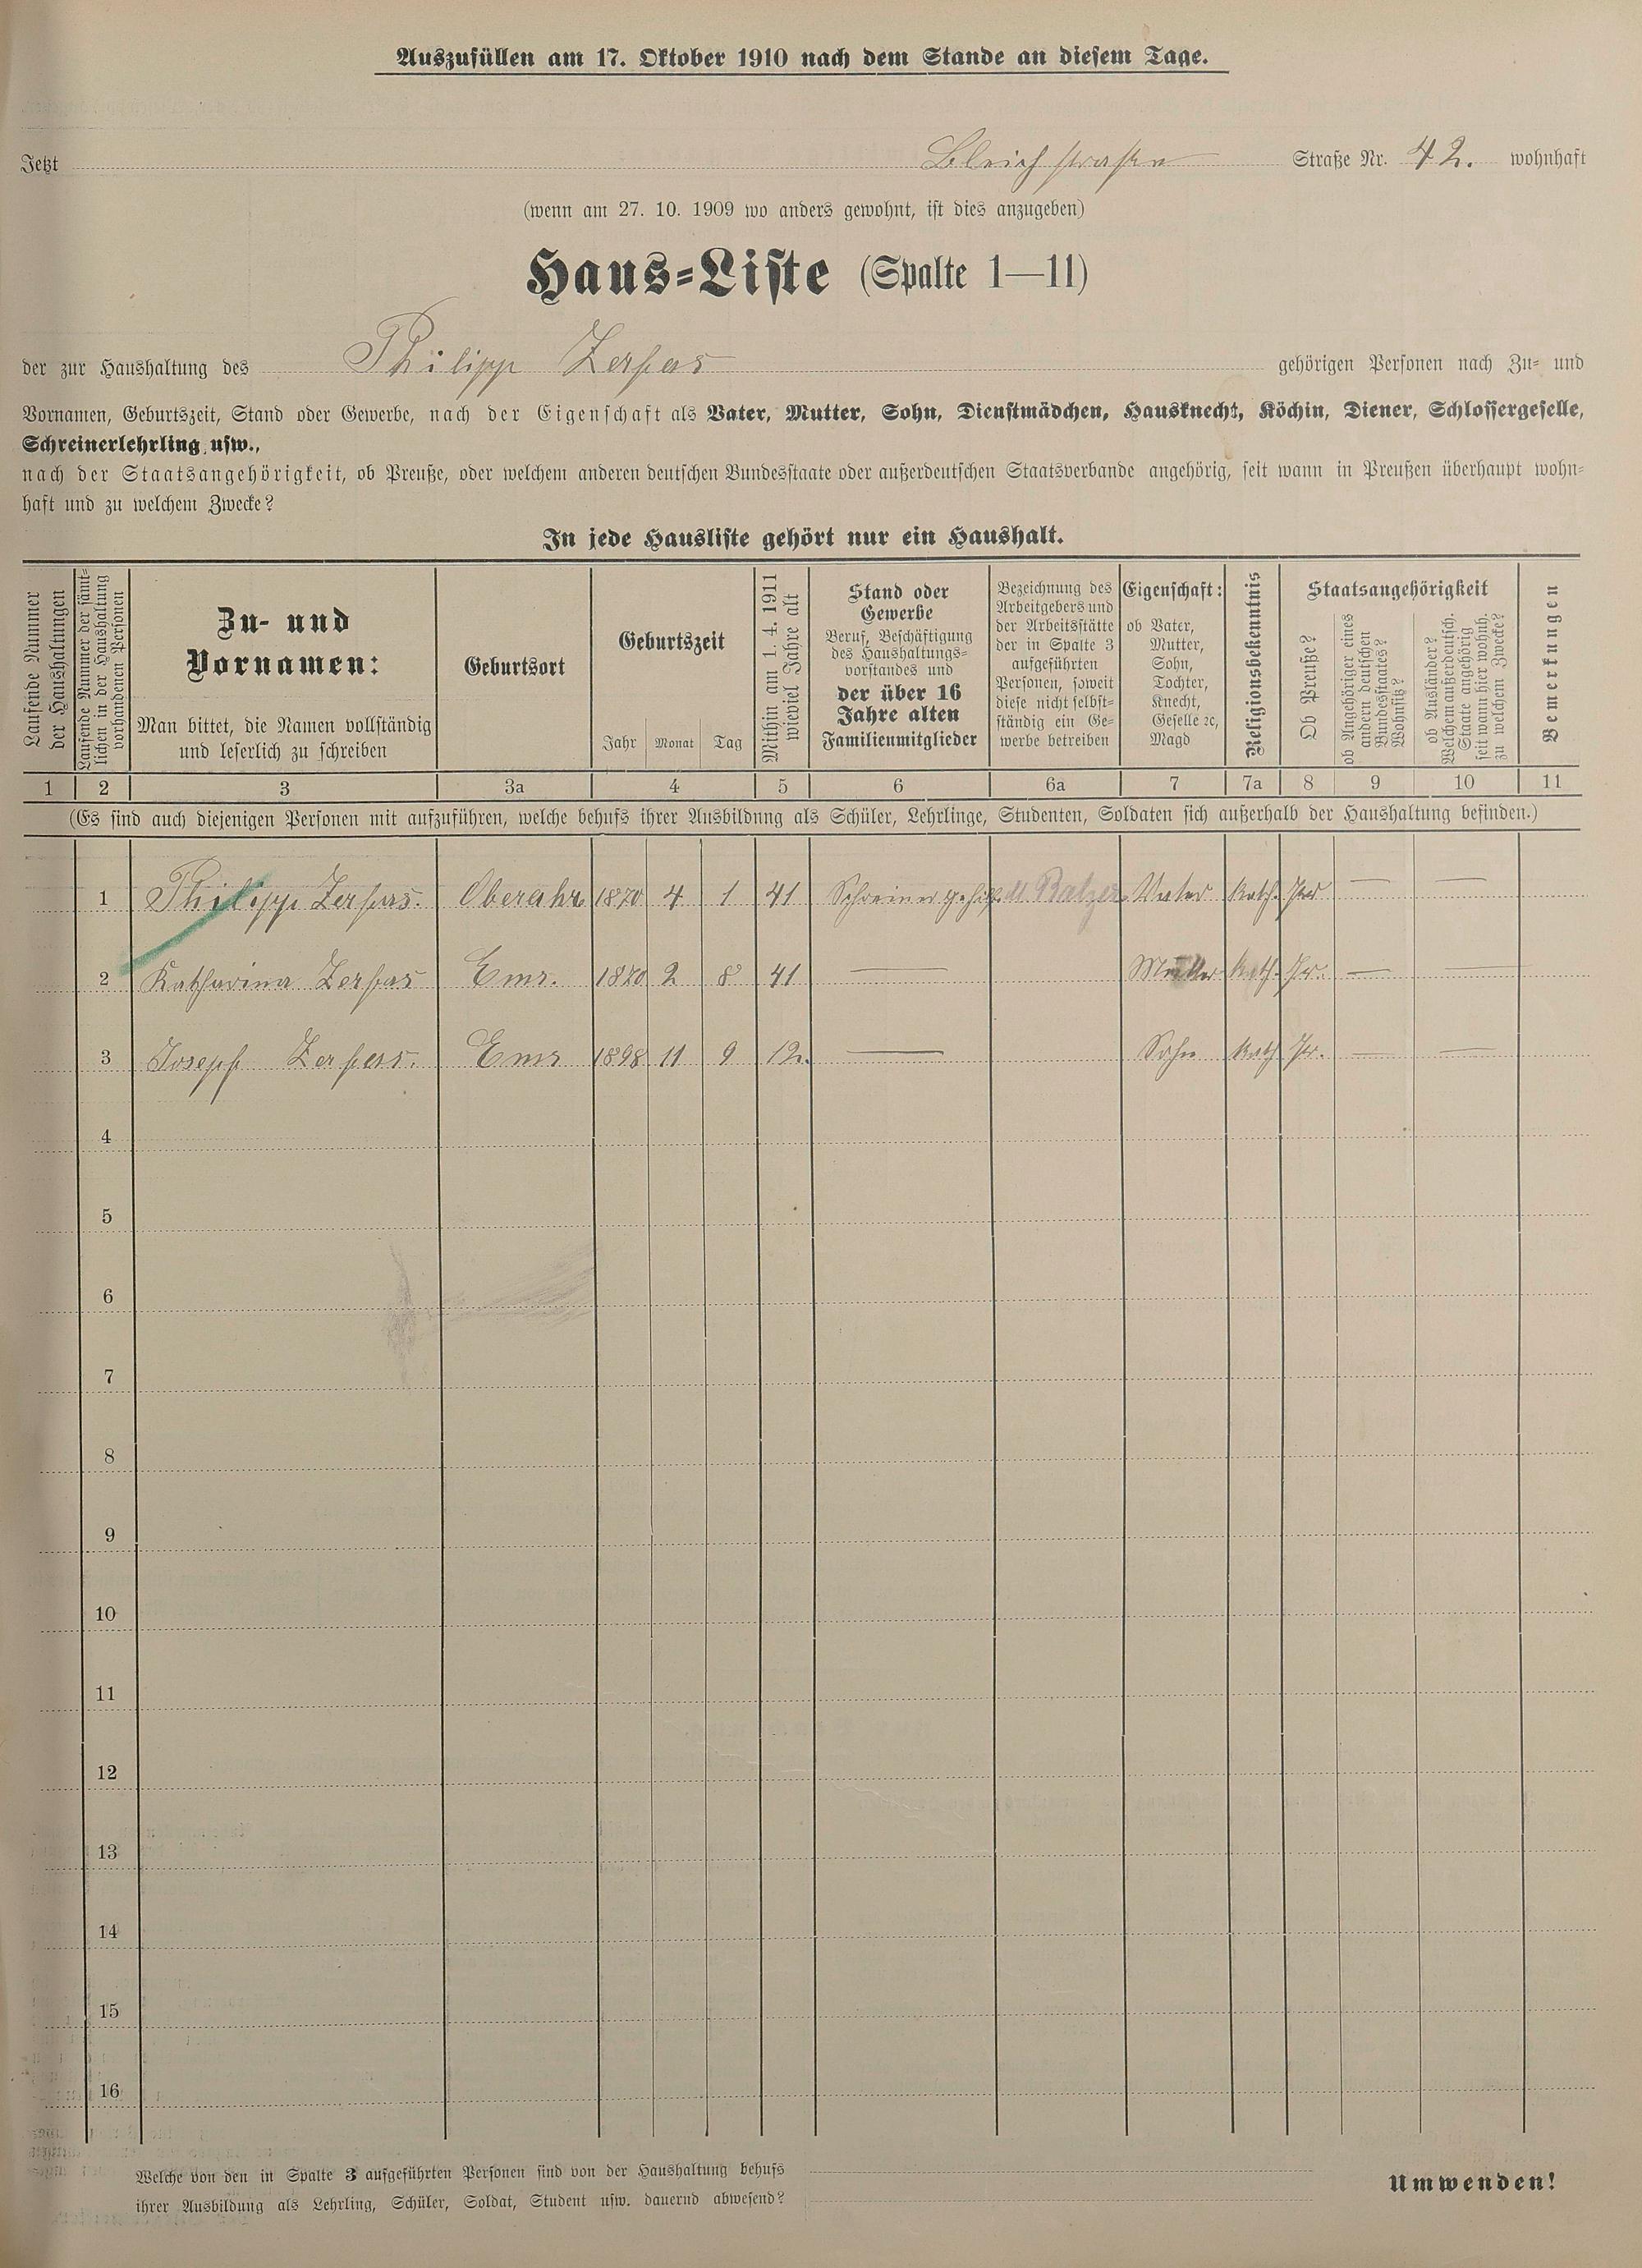 Auszufüllen am 17. Oktober 1910 nach dem Stande an diesem Tage.
Jetzt Bleichstraße Straße Nr. 42. wohnhaft
(wenn am 27. 10. 1909 wo anders gewohnt, ist dies anzugeben)
Haus-Liste (Spalte 1—11)
der zur Haushaltung des Philipp Zerfas gehörigen Personen nach Zu- und
Vornamen, Geburtszeit, Stand oder Gewerbe, nach der Eigenschaft als Vater, Mutter, Sohn, Dienstmädchen, Hausknecht, Köchin, Diener, Schlossergeselle,
Schreinerlehrling usw.,
nach der Staatsangehörigkeit, ob Preuße, oder welchem anderen deutschen Bundesstaate oder außerdeutschen Staatsverbande angehörig, seit wann in Preußen überhaupt wohn-
haft und zu welchem Zwecke?
In jede Hausliste gehört nur ein Haushalt.
Laufende Nummer
der Haushaltungen
Laufende Nummer der sämt-
lichen in der Haushaltung
vorhandenen Personen
Zu- und
Vornamen:
Man bittet, die Namen vollständig
und leserlich zu schreiben
Geburtsort
Geburtszeit
Jahr Monat Tag
Mithin am 1. 4. 1911
wieviel Jahre alt
Stand oder
Gewerbe
Beruf, Beschäftigung
des Haushaltungs-
vorstandes und
der über 16
Jahre alten
Familienmitglieder
Bezeichnung des
Arbeitgebers und
der Arbeitsstätte
der in Spalte 3
aufgeführten
Personen, soweit
diese nicht selbst-
ständig ein Ge-
werbe betreiben
Eigenschaft:
ob Vater,
Mutter,
Sohn,
Tochter,
Knecht,
Geselle ꝛc,
Magd
Religionsbekenntnis
Staatsangehörigkeit
Ob Preuße?
ob Angehöriger eines
andern deutschen
Bundesstaates?
Wohnsitz?
ob Ausländer?
Welchem außerdeutsch.
Staate angehörig
seit wann hier wohnh.
zu welchem Zwecke?
Bemerkungen
1 2 3 3a 4 5 6 6a 7 7a 8 9 10 11
(Es sind auch diejenigen Personen mit aufzuführen, welche behufs ihrer Ausbildung als Schüler, Lehrlinge, Studenten, Soldaten sich außerhalb der Haushaltung befinden.)
1 Philipp Zerfas. Oberahr 1870 4 1 41 Schreinergehilfe Balzer Vater kath. Pr. — —
2 Katharina Zerfas Ems. 1870 2 8 41 — Mutter kath. Pr. — —
3 Joseph Zerfas. Ems 1898 11 9 12. — Sohn kath Pr. — —
4
5
6
7
8
9
10
11
12
13
14
15
16
Welche von den in Spalte 3 aufgeführten Personen sind von der Haushaltung behufs
ihrer Ausbildung als Lehrling, Schüler, Soldat, Student usw. dauernd abwesend?
Umwenden!